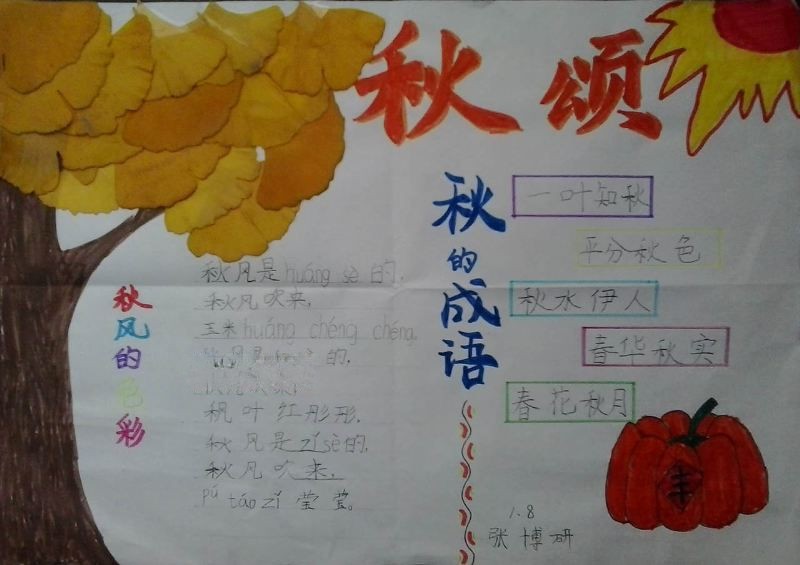 秋颂
秋风的色彩
秋风是huáng sè的,
秋风吹来,
玉米huáng chéng chéng。
的,
枫叶红彤彤,
秋风是zǐsè的,
秋风吹来,
pú táo zǐ 莹莹。
秋的成语
一叶知秋
平分秋色
秋水伊人
春华秋实
春花秋月
丰
1.8
张博研